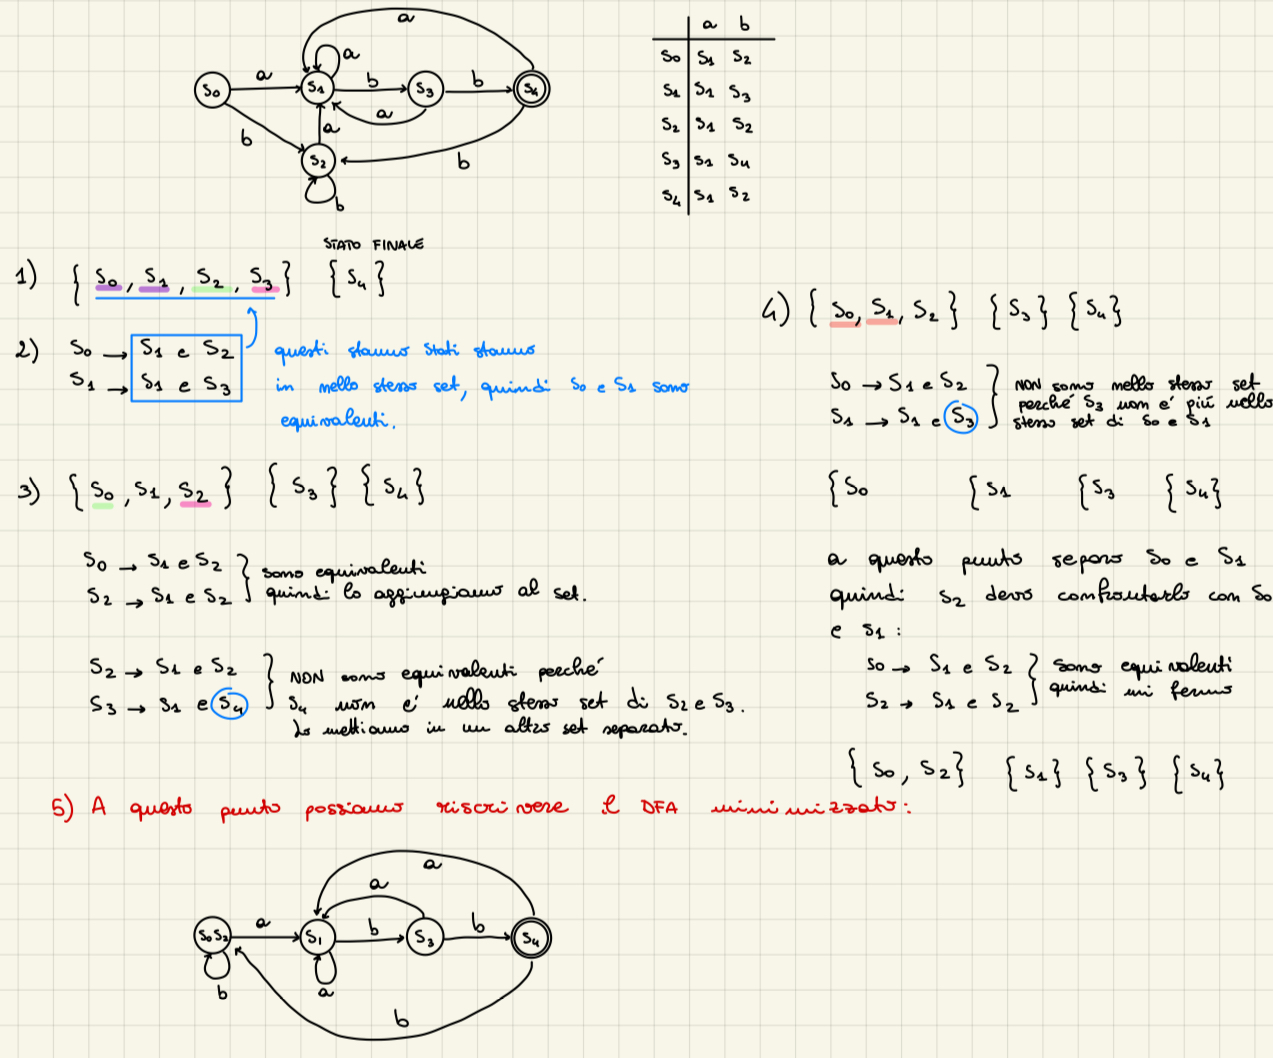 a
a
a
b
b
a
b
a
b
b
S0
S1
S3
S4
S2
a b
S0 S1 S2
S1 S1 S3
S2 S1 S2
S3 S1 S4
S4 S1 S2
STATO FINALE
1) { S0, S1, S2, S3 } { S4 }
2) S0 → S1 e S2
S1 → S1 e S3
questi stanno stati stanno
in nello stesso set, quindi S0 e S1 sono
equivalenti.
3) { S0, S1, S2 } { S3 } { S4 }
S0 → S1 e S2
S2 → S1 e S2
sono equivalenti
quindi lo aggiungiamo al set.
S2 → S1 e S2
S3 → S1 e S4
NON sono equivalenti perché
S4 non é nello stesso set di S2 e S3.
Lo mettiamo in un altro set separato.
4) { S0, S1, S2 } { S3 } { S4 }
S0 → S1 e S2
S1 → S1 e S3
NON sono nello stesso set
perché S3 non é piú nello
stesso set di S0 e S1
{ S0 { S1 { S3 { S4 }
a questo punto separo S0 e S1
quindi S2 devo confrontarlo con S0
e S1 :
S0 → S1 e S2
S2 → S1 e S2
sono equivalenti
quindi mi fermo
{ S0, S2 } { S1 } { S3 } { S4 }
5) A questo punto possiamo riscrivere il DFA minimizzato:
a
a
a
b
b
b
a
b
S0 S2
S1
S3
S4